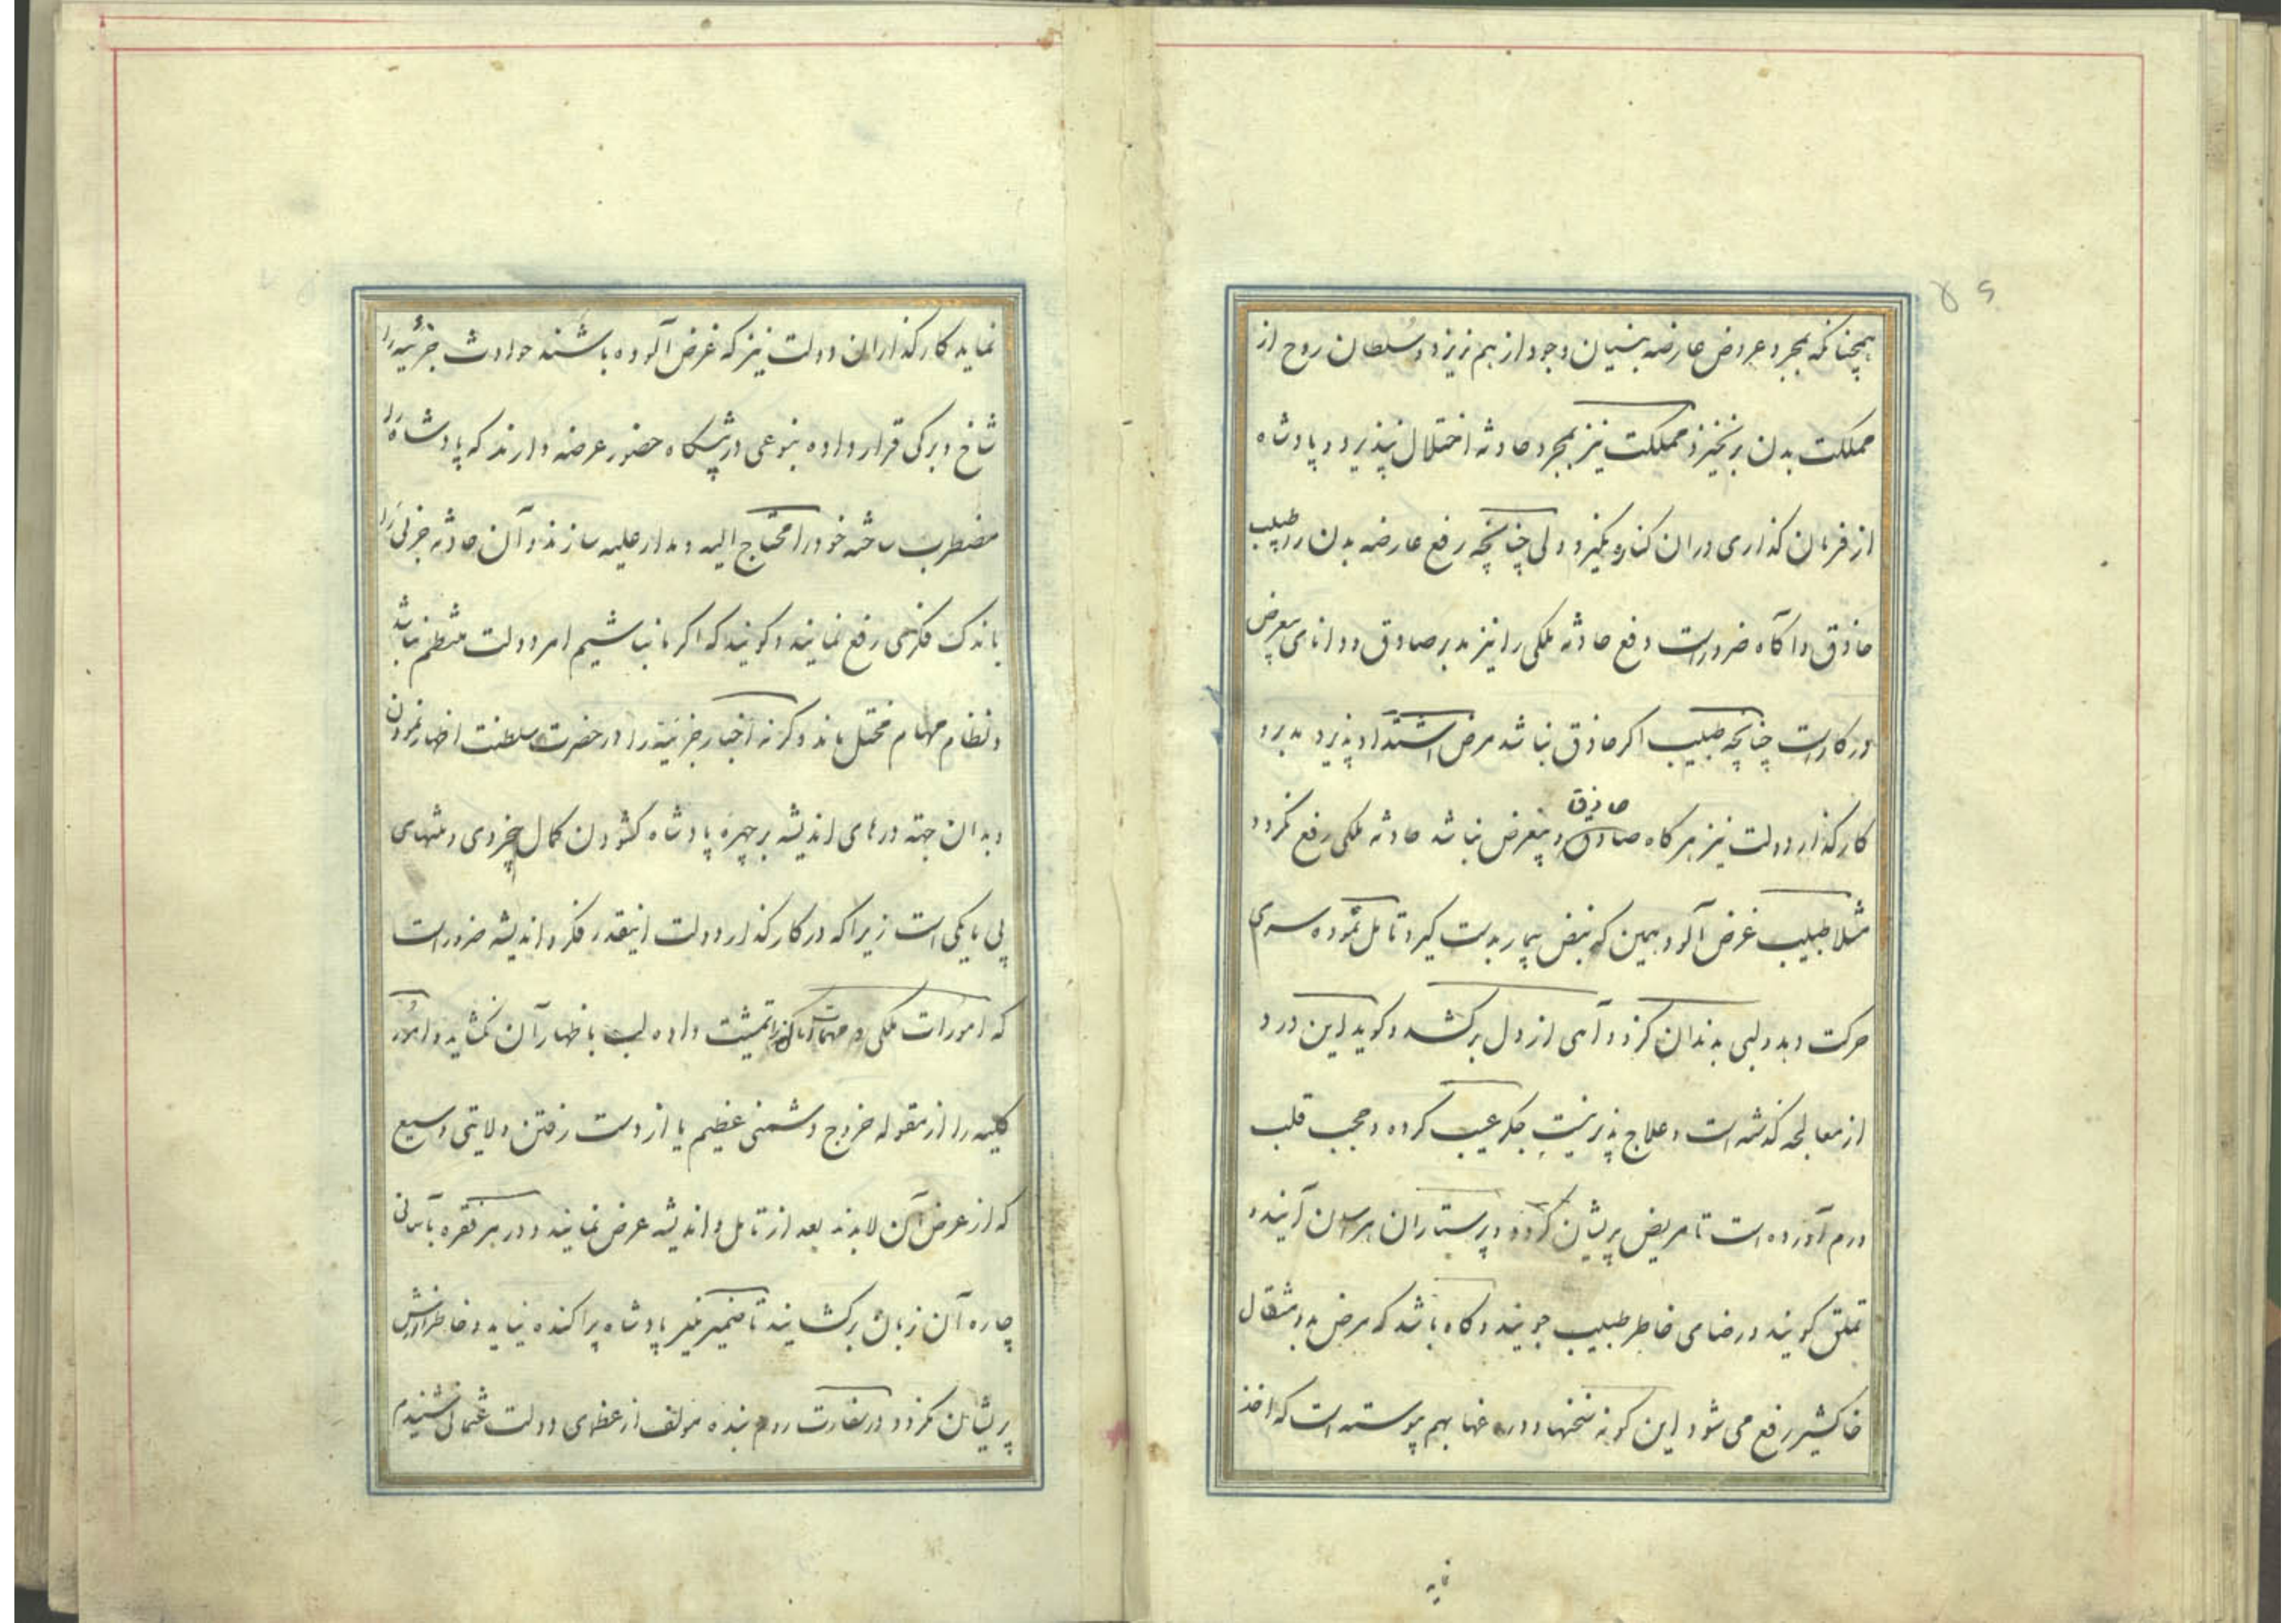 ۵۶
همچنانکه بمجرد عروض عارضه بنیان وجود از هم نریزد و سلطان روح از
مملکت بدن برنخیزد مملکت نیز بمجرد حادثه اختلال نپذیرد و پادشاه
از فرمان گذاری در آن کناره نگیرد ولی چنانچه رفع عارضه بدن را طبیب
حاذق و آگاه ضرور است دفع حادثه ملکی را نیز مدبر صادق و دانای بیغرض
در کار است چنانچه طبیب اگر حاذق نباشد مرض اشتداد پذیرد مدبر و
کارگذار دولت نیز هر گاه صادق و بیغرض نباشد حادثه ملکی رفع نگردد
حاذق
مثلا طبیب غرض آلود همین که نبض بیمار بدست گیرد تامل نموده سری
حرکت دهد و لبی بدندان گزد و آهی از دل برکشد و گوید این درد
از معالجه گذشته است و علاج پذیر نیست جگر عیب کرده و حجب قلب
ورم آورده است تا مریض پریشان گردد و پرستاران هراسان آیند و
تملق گویند و رضای خاطر طبیب جویند و گاه باشد که مرض بدو مثقال
خاکشیر رفع می شود این گونه سخنها و دروغها بهم پیوسته است که اخذ
نماید
نماید کارگذاران دولت نیز که غرض آلوده باشند حوادث جزئیه را
شاخ و برگی قرار داده بنوعی در پیشگاه حضور عرضه دارند که پادشاه را
مضطرب ساخته خود را محتاج الیه و مدار علیه سازند و آن حادثه جزئی را
باندک فکری رفع نمایند و گویند که اگر ما نباشیم امر دولت منتظم نباشد
و نظام مهام مختل ماند و گرنه اخبار جزئیه را در حضرت سلطنت اظهار نمودن
و بدان جهته درهای اندیشه بر چهره پادشاه گشودن کمال بیخردی و منتهای
بی باکی است زیرا که در کارگذار دولت اینقدر فکر و اندیشه ضرور است
که امورات ملکی و مهمات را تمشیت داده لب باظهار آن نگشاید و امور
کلیه را از مقوله خروج دشمنی عظیم یا از دست رفتن ولایتی وسیع
که از عرض آن لابدند بعد از تامل و اندیشه عرض نمایند و در هر فقره بآسانی
چاره آن زبان برگشایند تا ضمیر منیر پادشاه پراکنده نیاید و خاطر انورش
پریشان نگردد در سفارت روم بنده مولف از عظمای دولت عثمانی شنیدم